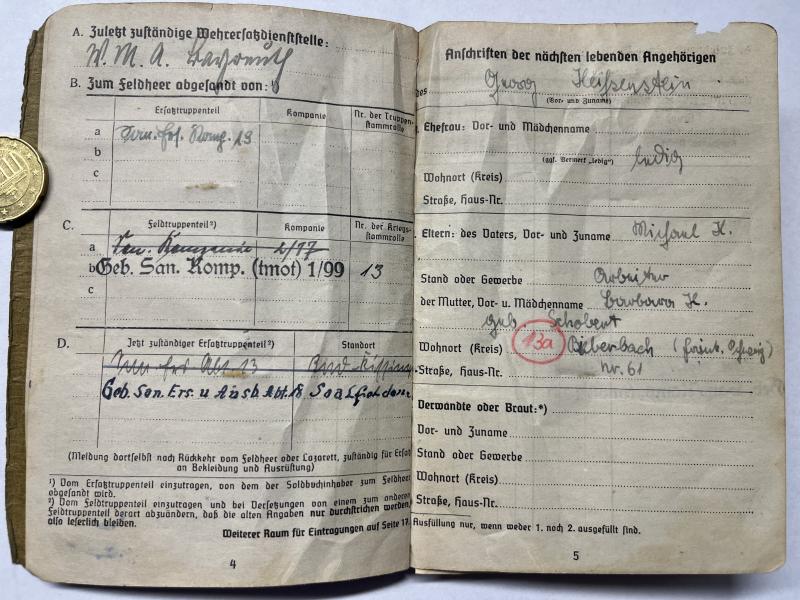 A. Zuletzt zuständige Wehrersatzdienststelle:
W. M. A. Bayreuth
B. Zum Feldheer abgesandt von:
Ersatztruppenteil Kompanie Nr. der Truppen-
stammrolle
a San. Ers. Komp. 13
b
c
C. Feldtruppenteil²) Kompanie Nr. der Kriegs-
stammrolle
a San. Kompanie 2/17
b Geb. San. Komp. (tmot) 1/99 13
c
D. Jetzt zuständiger Ersatztruppenteil²) Standort
San Ers Abt 13 Bad-Kissingen
Geb. San. Ers. u Ausb. Abt. 18 Saalfelden
(Meldung dortselbst nach Rückkehr vom Feldheer oder Lazarett, zuständig für Ersatz
an Bekleidung und Ausrüstung)
¹) Vom Ersatztruppenteil einzutragen, von dem der Soldbuchinhaber zum Feldheer
abgesandt wird.
²) Vom Feldtruppenteil einzutragen und bei Versetzungen von einem zum anderen
Feldtruppenteil derart abzuändern, daß die alten Angaben nur durchstrichen werden,
also leserlich bleiben.
Weiterer Raum für Eintragungen auf Seite 17.
4
Anschriften der nächsten lebenden Angehörigen
des Georg Heißenstein
(Vor- und Zuname)
Ehefrau: Vor- und Mädchenname
(ggf. Vermerk „ledig") ledig
Wohnort (Kreis)
Straße, Haus-Nr.
Eltern: des Vaters, Vor- und Zuname Michael H.
Stand oder Gewerbe Arbeiter
der Mutter, Vor- u. Mädchenname Barbara H.
geb. Schobert
Wohnort (Kreis) 13a Biberbach (fränk. Schweiz)
Straße, Haus-Nr. Nr. 61
Verwandte oder Braut:*)
Vor- und Zuname
Stand oder Gewerbe
Wohnort (Kreis)
Straße, Haus-Nr.
Ausfüllung nur, wenn weder 1. noch 2. ausgefüllt sind.
5